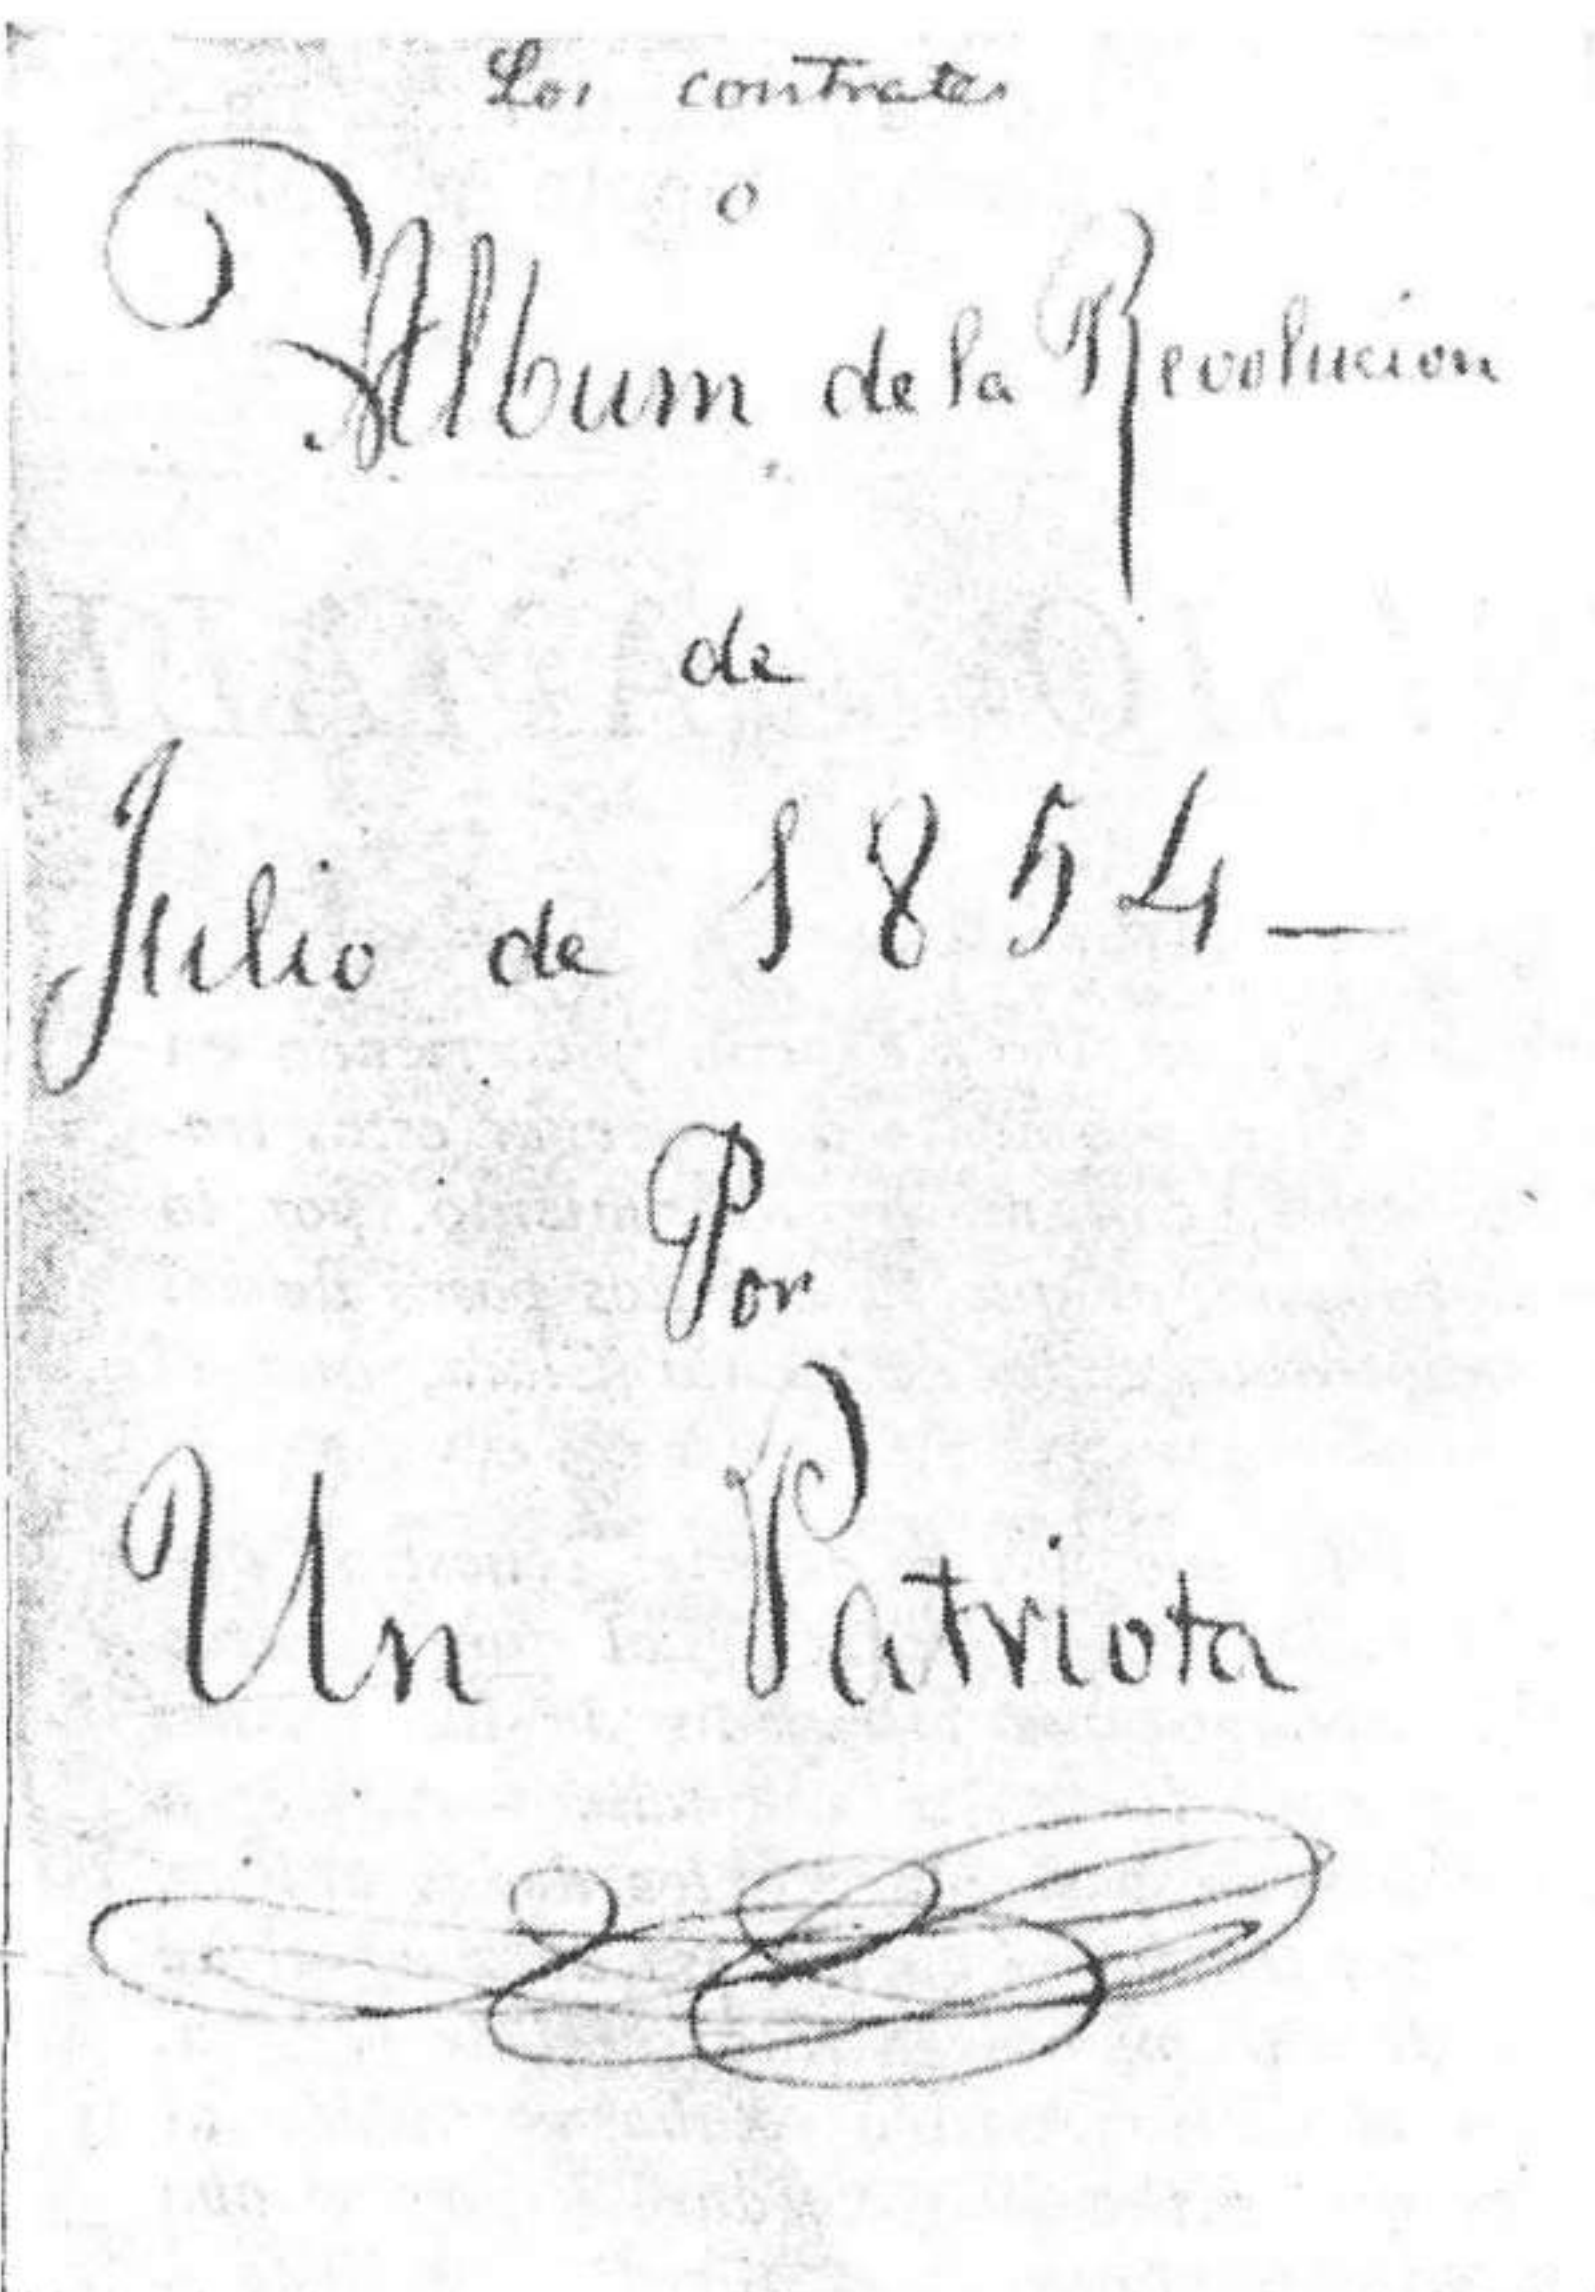 Los contrates
o
Album de la Revolucion
de
Julio de 1854—
Por
Un Patriota